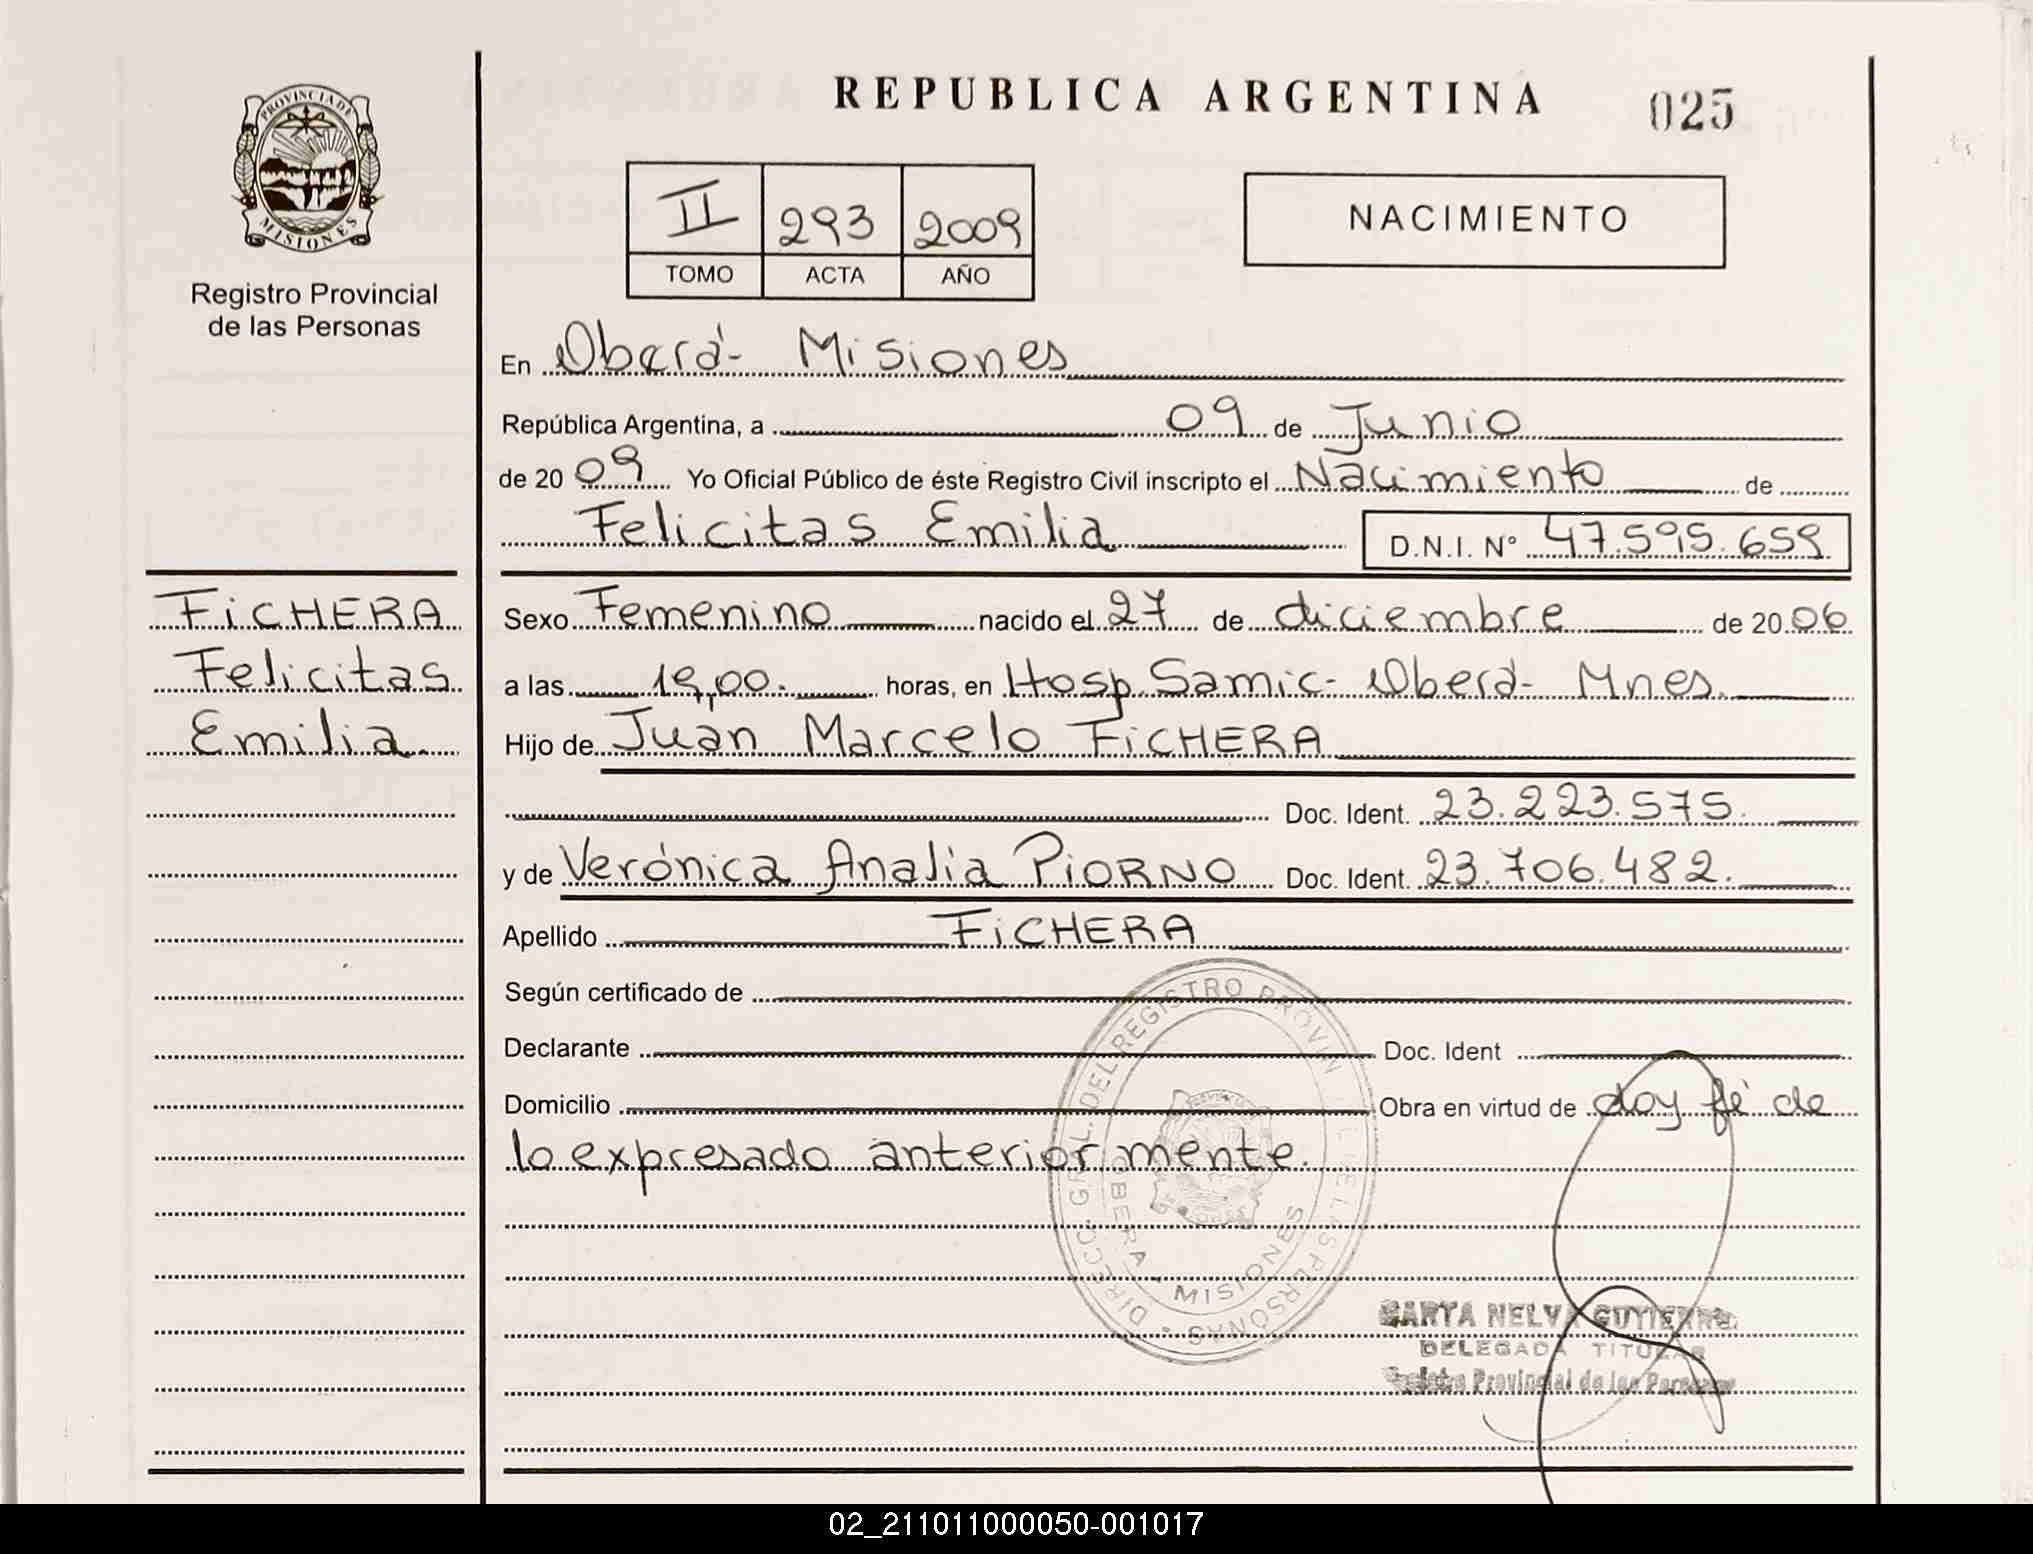 REPUBLICA ARGENTINA
025
PROVINCIA DE
MISIONES
Registro Provincial
de las Personas
II 293 2009
TOMO ACTA AÑO
NACIMIENTO
En Oberá - Misiones
República Argentina, a 09 de Junio
de 20 09 Yo Oficial Público de éste Registro Civil inscripto el Nacimiento de
Felicitas Emilia D.N.I. N° 47.595.659
FiCHERA
Felicitas
Emilia.
Sexo Femenino nacido el 27 de diciembre de 20 06
a las 19,00. horas, en Hosp. Samic - Oberá - Mnes.
Hijo de Juan Marcelo FiCHERA
Doc. Ident. 23.223.575.
y de Verónica Analia PiORNO Doc. Ident. 23.706.482.
Apellido FiCHERA
Según certificado de
Declarante Doc. Ident
Domicilio Obra en virtud de doy fé de
lo expresado anteriormente.
DIRECC. GRAL. DEL REGISTRO PROVINCIAL DE LAS PERSONAS
OBERA - MISIONES
NELVA
DELEGADA TITULAR
Registro Provincial de las Personas
02_211011000050-001017